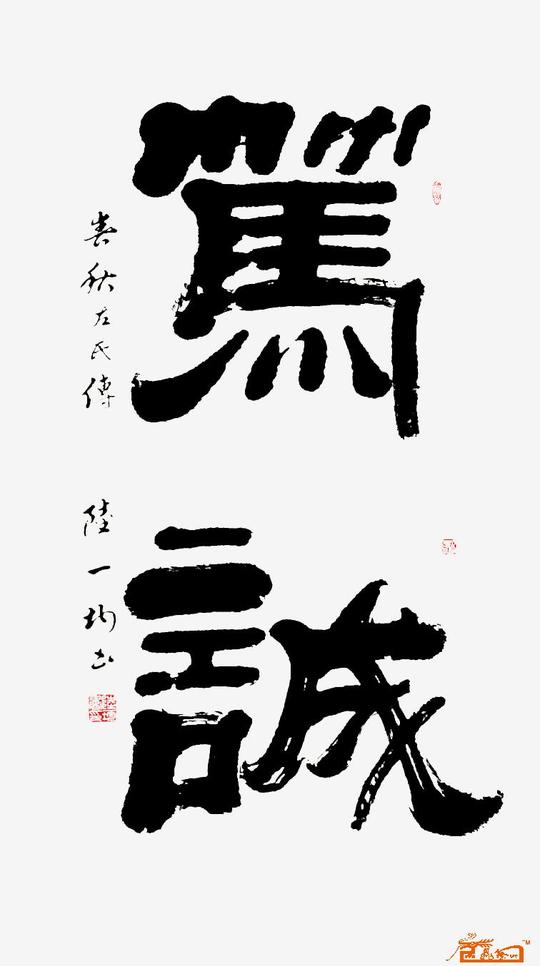 篤
誠
春秋左氏傳
陸一均书